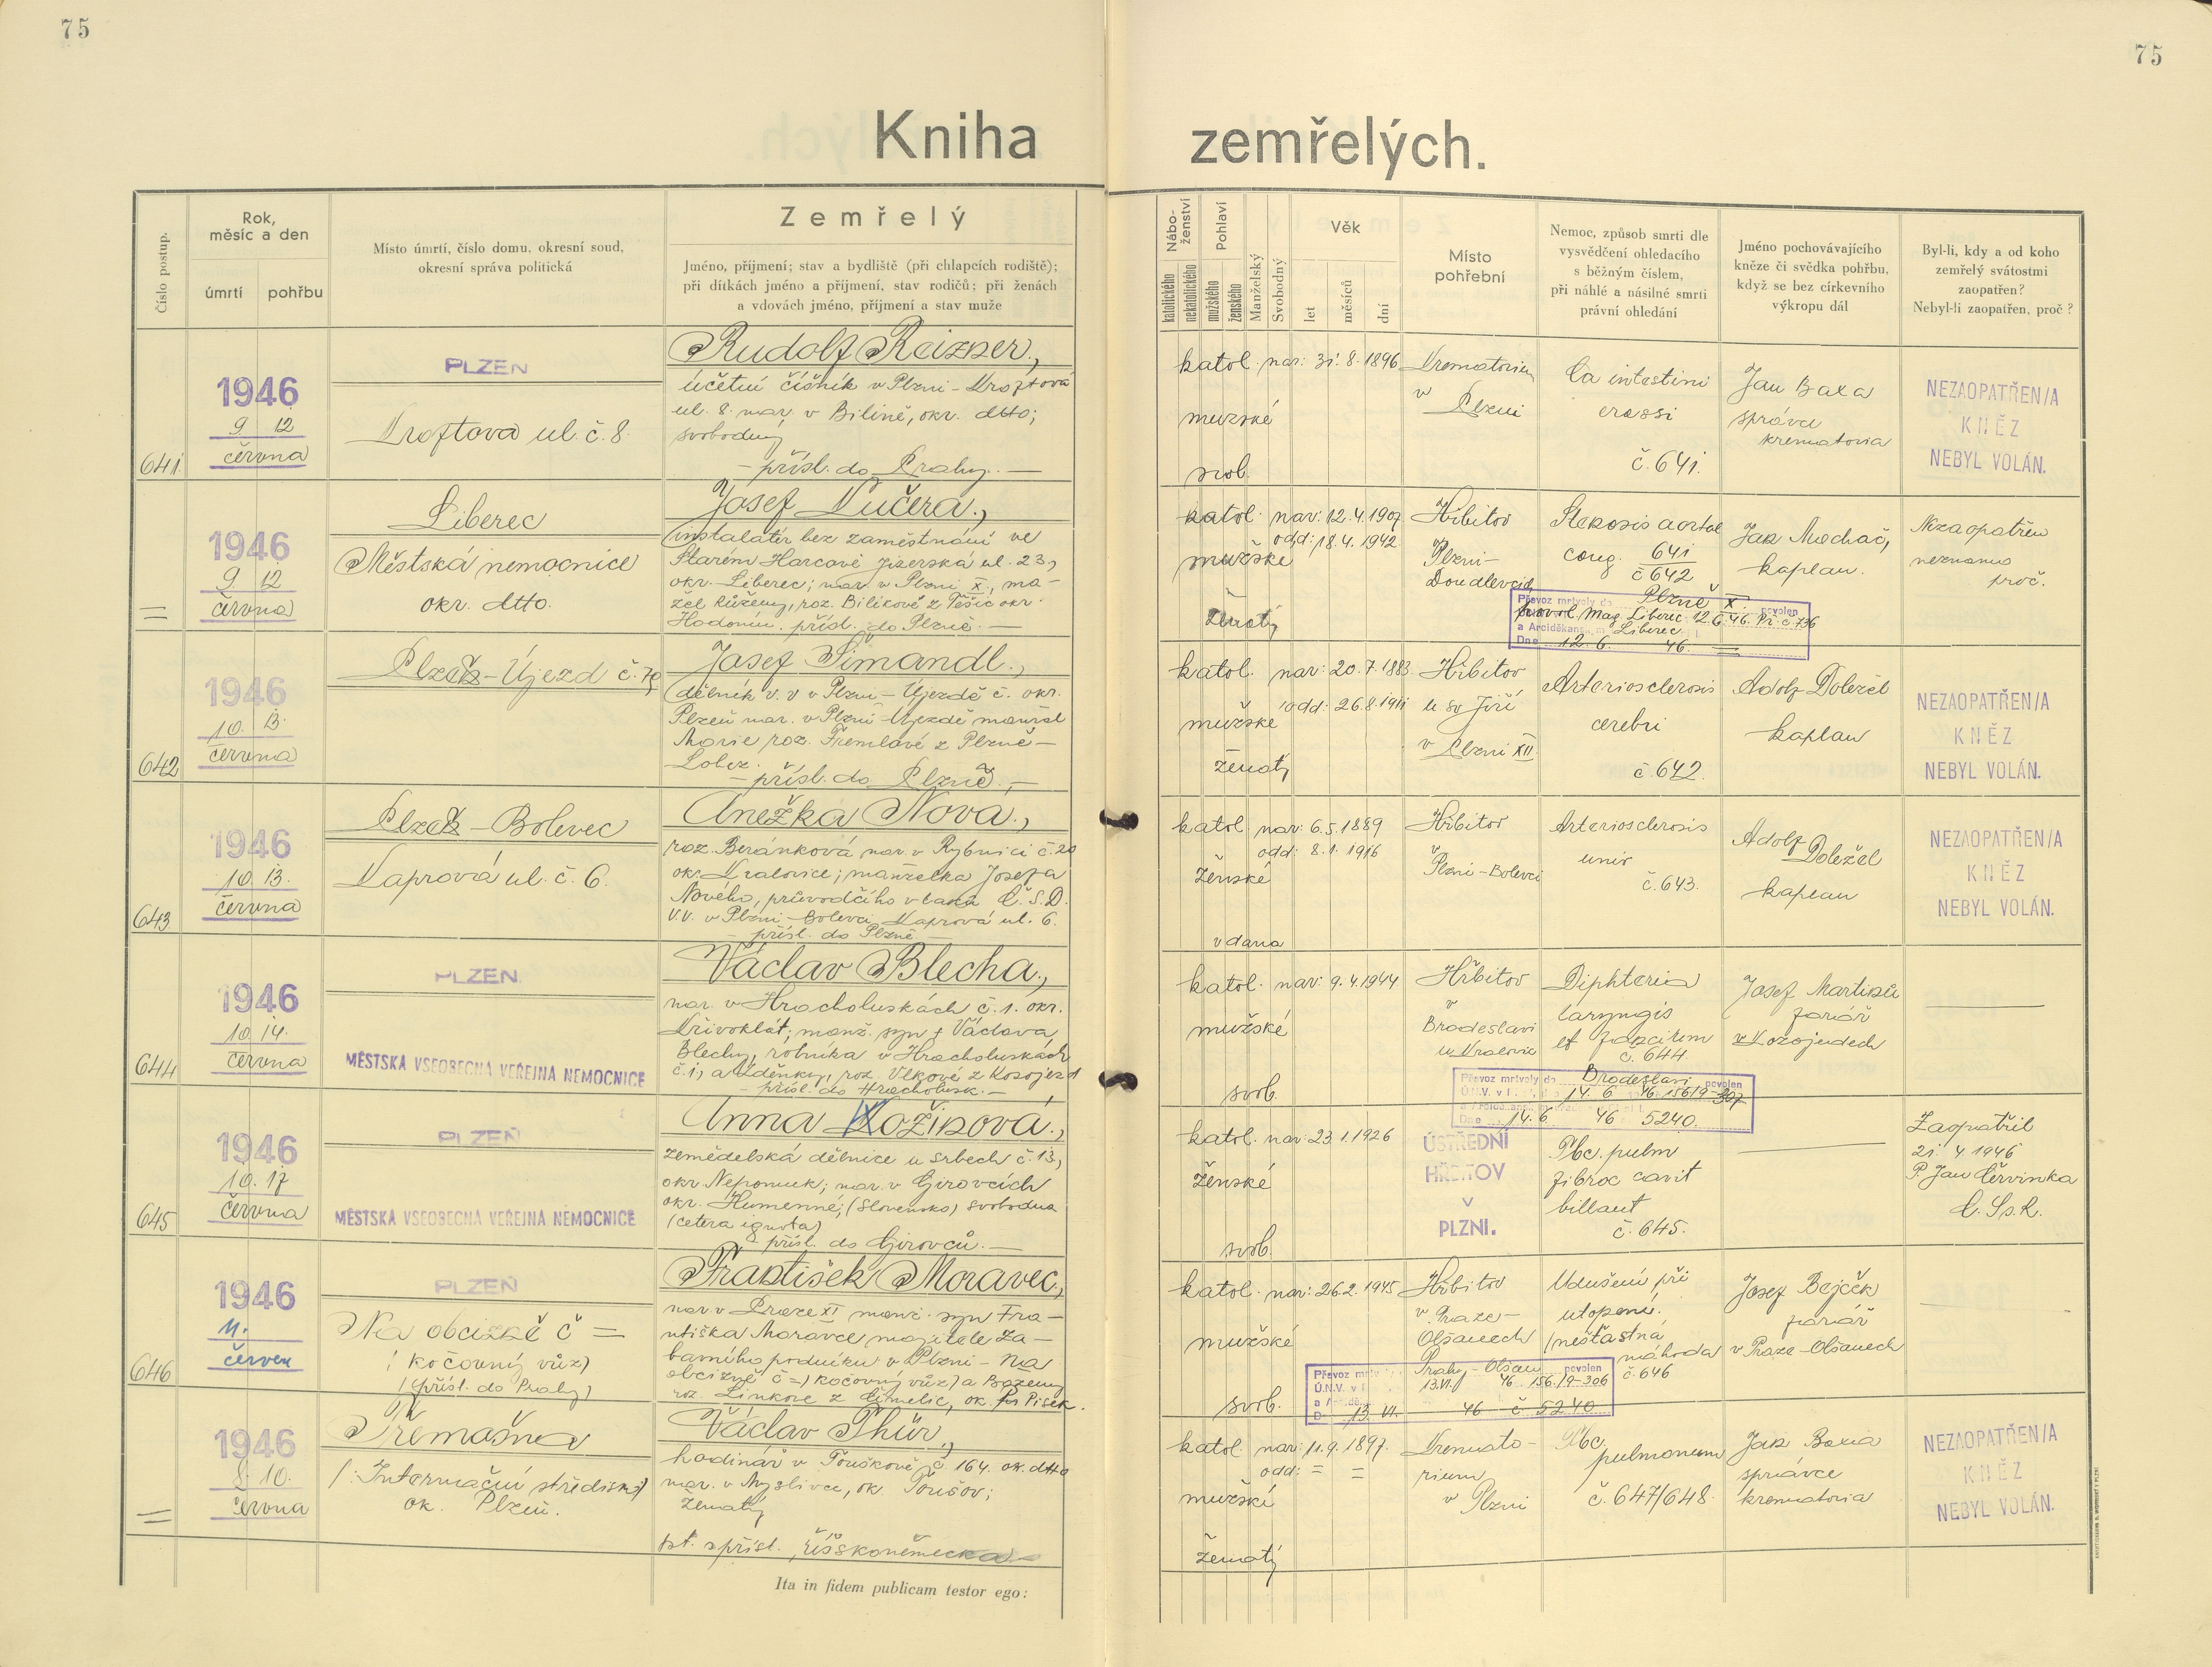 75
75
Kniha zemřelých.
Číslo postup.
Rok,
měsíc a den
úmrtí
pohřbu
Místo úmrtí, číslo domu, okresní soud,
okresní správa politická
Zemřelý
Jméno, příjmení; stav a bydliště (při chlapcích rodiště);
při dítkách jméno a příjmení, stav rodičů; při ženách
a vdovách jméno, příjmení a stav muže
Nábo-
ženství
katolického
nekatolického
Pohlaví
mužského
ženského
Manželský
Svobodný
Věk
let
měsíců
dní
Místo
pohřební
Nemoc, způsob smrti dle
vysvědčení ohledacího
s běžným číslem,
při náhlé a násilné smrti
právní ohledání
Jméno pochovávajícího
kněze či svědka pohřbu,
když se bez církevního
výkropu dál
Byl-li, kdy a od koho
zemřelý svátostmi
zaopatřen?
Nebyl-li zaopatřen, proč?
641
1946
9 12
června
PLZEŇ
Kroftova ul. č. 8.
Rudolf Reizner,
účetní číšník v Plzni - Kroftova
ul. 8. nar. v Bilině, okr. dtto;
svobodný
- přísl. do Prahy. -
katol.
mužské
svob.
nar: 31. 8. 1896
Krematorium
v Plzni
Ca intestini
crassi
č. 641.
Jan Baxa
správce
krematoria
NEZAOPATŘEN/A
KNĚZ
NEBYL VOLÁN.
=
1946
9 12
června
Liberec
Městská nemocnice
okr. dtto.
Josef Kučera,
instalatér bez zaměstnání ve
Starém Harcově Jizerská ul. 23,
okr. Liberec; nar. v Plzni X, ma-
žel Růženy, roz. Bilíkové z Těšic okr.
Hodonín. přísl. do Plzně. -
katol.
mužské
ženatý
nar: 12. 4. 1907
odd: 18. 4. 1942
Hřbitov
v Plzni-
Doudlevcích
Stenosis aortae
cong. 641
č 642
Jan Mochač,
kaplan.
Nezaopatřen
neznámo
proč.
Převoz mrtvoly do Plzně X. povolen
povol. Mag. Liberec 12.6.46. Pr. č 736
a Arciděkan. m Liberec
Dne 12. 6. 46. =
642
1946
10. 13.
června
Plzeň - Újezd č. 70
Josef Šimandl,
dělník v. v v Plzni - Újezdě č. okr.
Plzeň nar. v Plzni - Újezdě manžel
Marie roz. Tremlové z Plzně -
Lobez.
- přísl. do Plzně. -
katol.
mužské
ženatý
nar: 20. 7. 1883
odd: 26. 8. 1911
Hřbitov
u sv Jiří
v Plzni XII
Arteriosclerosis
cerebri
č 642.
Adolf Doležel
kaplan
NEZAOPATŘEN/A
KNĚZ
NEBYL VOLÁN.
643
1946
10. 13.
června
Plzeň - Bolevec
Kaprová ul. č. 6.
Anežka Nova,
roz. Beránková nar. v Rybnici č. 20
okr. Kralovice; manželka Josefa
Nového, průvodčího vlaku Č. S. D.
v. v. v Plzni - Bolevci Kaprová ul. 6.
- přísl. do Plzně -
katol
ženské
vdana
nar: 6. 5. 1889
odd: 8. 1. 1916
Hřbitov
v Plzni - Bolevci
Arteriosclerosis
univ
č. 643.
Adolf
Doležel
kaplan
NEZAOPATŘEN/A
KNĚZ
NEBYL VOLÁN.
644
1946
10. 14.
června
PLZEŇ
MĚSTSKÁ VŠEOBECNÁ VEŘEJNÁ NEMOCNICE
Václav Blecha,
nar. v Hracholuskách č. 1. okr.
Křivoklát; manž. syn † Václava
Blechy, rolníka v Hracholuskách
č. 1, a Zděnky, roz. Vlkové z Kozojed
- přísl. do Hracholusk. -
katol.
mužské
svob.
nar: 9. 4. 1944
Hřbitov
v
Brodeslavi
u Kralovic
Diphteria
laryngis
et faucium
č. 644
Josef Martinů
farář
v Kozojedech
Převoz mrtvoly do Brodeslavi povolen
Ú.N.V. v 14. 6 46 156/9-307
Dne 14. 6. 46 5240.
645
1946
10. 17
června
PLZEŇ
MĚSTSKÁ VŠEOBECNÁ VEŘEJNÁ NEMOCNICE
Anna Kožinová,
zemědelská dělnice u Srbech č. 13,
okr. Nepomuk; nar. v Girovcích
okr. Humenné; (Slovensko) svobodna
(cetera ignota)
přísl. do Girovců. -
katol.
ženské
svob.
nar: 23. 1. 1926
ÚSTŘEDNÍ
HŘBITOV
V
PLZNI.
Tbc. pulm
fibroc cavit
billaut
č. 645.
Zaopatřil
21. 4 1946
P. Jan Červinka
C. Ss. R.
646
1946
11.
červen
PLZEŇ
Na obcizně č =
(kočovný vůz)
(přísl. do Prahy)
František Moravec,
nar. v Praze XI manž. syn Fra-
ntiška Moravce majitele Za-
bavního podniku v Plzni - Na
obcizně č =) kočovný vůz) a Boženy
roz. Linkove z Čimelic, ok. Pisek.
katol.
mužské
svob.
nar: 26. 2. 1945
Hřbitov
v Praze-
Olšanech
Udušení při
utopení.
(nešťastná
náhoda
č. 646
Josef Bejček
farář
v Praze - Olšanech
Převoz mrtvoly Prahy - Olšan povolen
Ú.N.V. v 13. VI. 46 156/9-306
D 13. VI. 46 č 5240
=
1946
8. 10.
června
Třemošna
(: Internační středisko)
ok. Plzeň.
Václav Thür,
hodinář v Touškově č 164. ok. dtto
nar. v Myslivce, ok. Toušov;
ženatý
st. přísl. říšskoněmecká -
katol.
mužské
ženatý
nar: 11. 9. 1897.
odd: = =
Kremato-
rium
v Plzni
Tbc
pulmonum
č. 647/648.
Jan Baxa
správce
krematoria
NEZAOPATŘEN/A
KNĚZ
NEBYL VOLÁN.
Ita in fidem publicam testor ego: